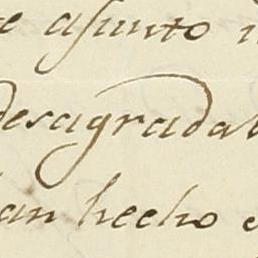 e asunto
desagradab
an hecho